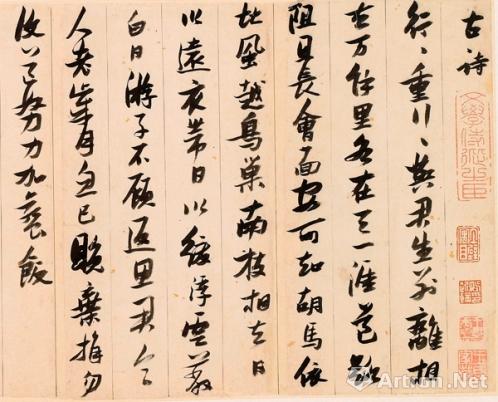 古詩
行〻重行〻與君生别離相
去万餘里各在天一涯道路
阻且長會面安可知胡馬依
北風越鳥巢南枝相去日
以遠衣帶日以緩浮雲蔽
白日游子不顧返思君令
人老歲月忽已晚棄捐勿
復道努力加餐飯
Artron.Net